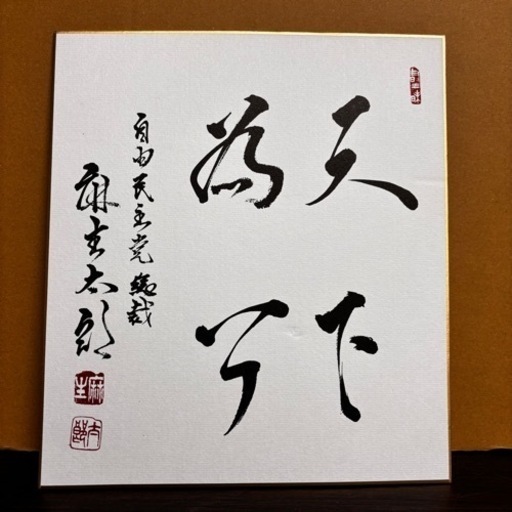 天下
為公
自由民主党総裁
麻生太郎
麻生
太郎